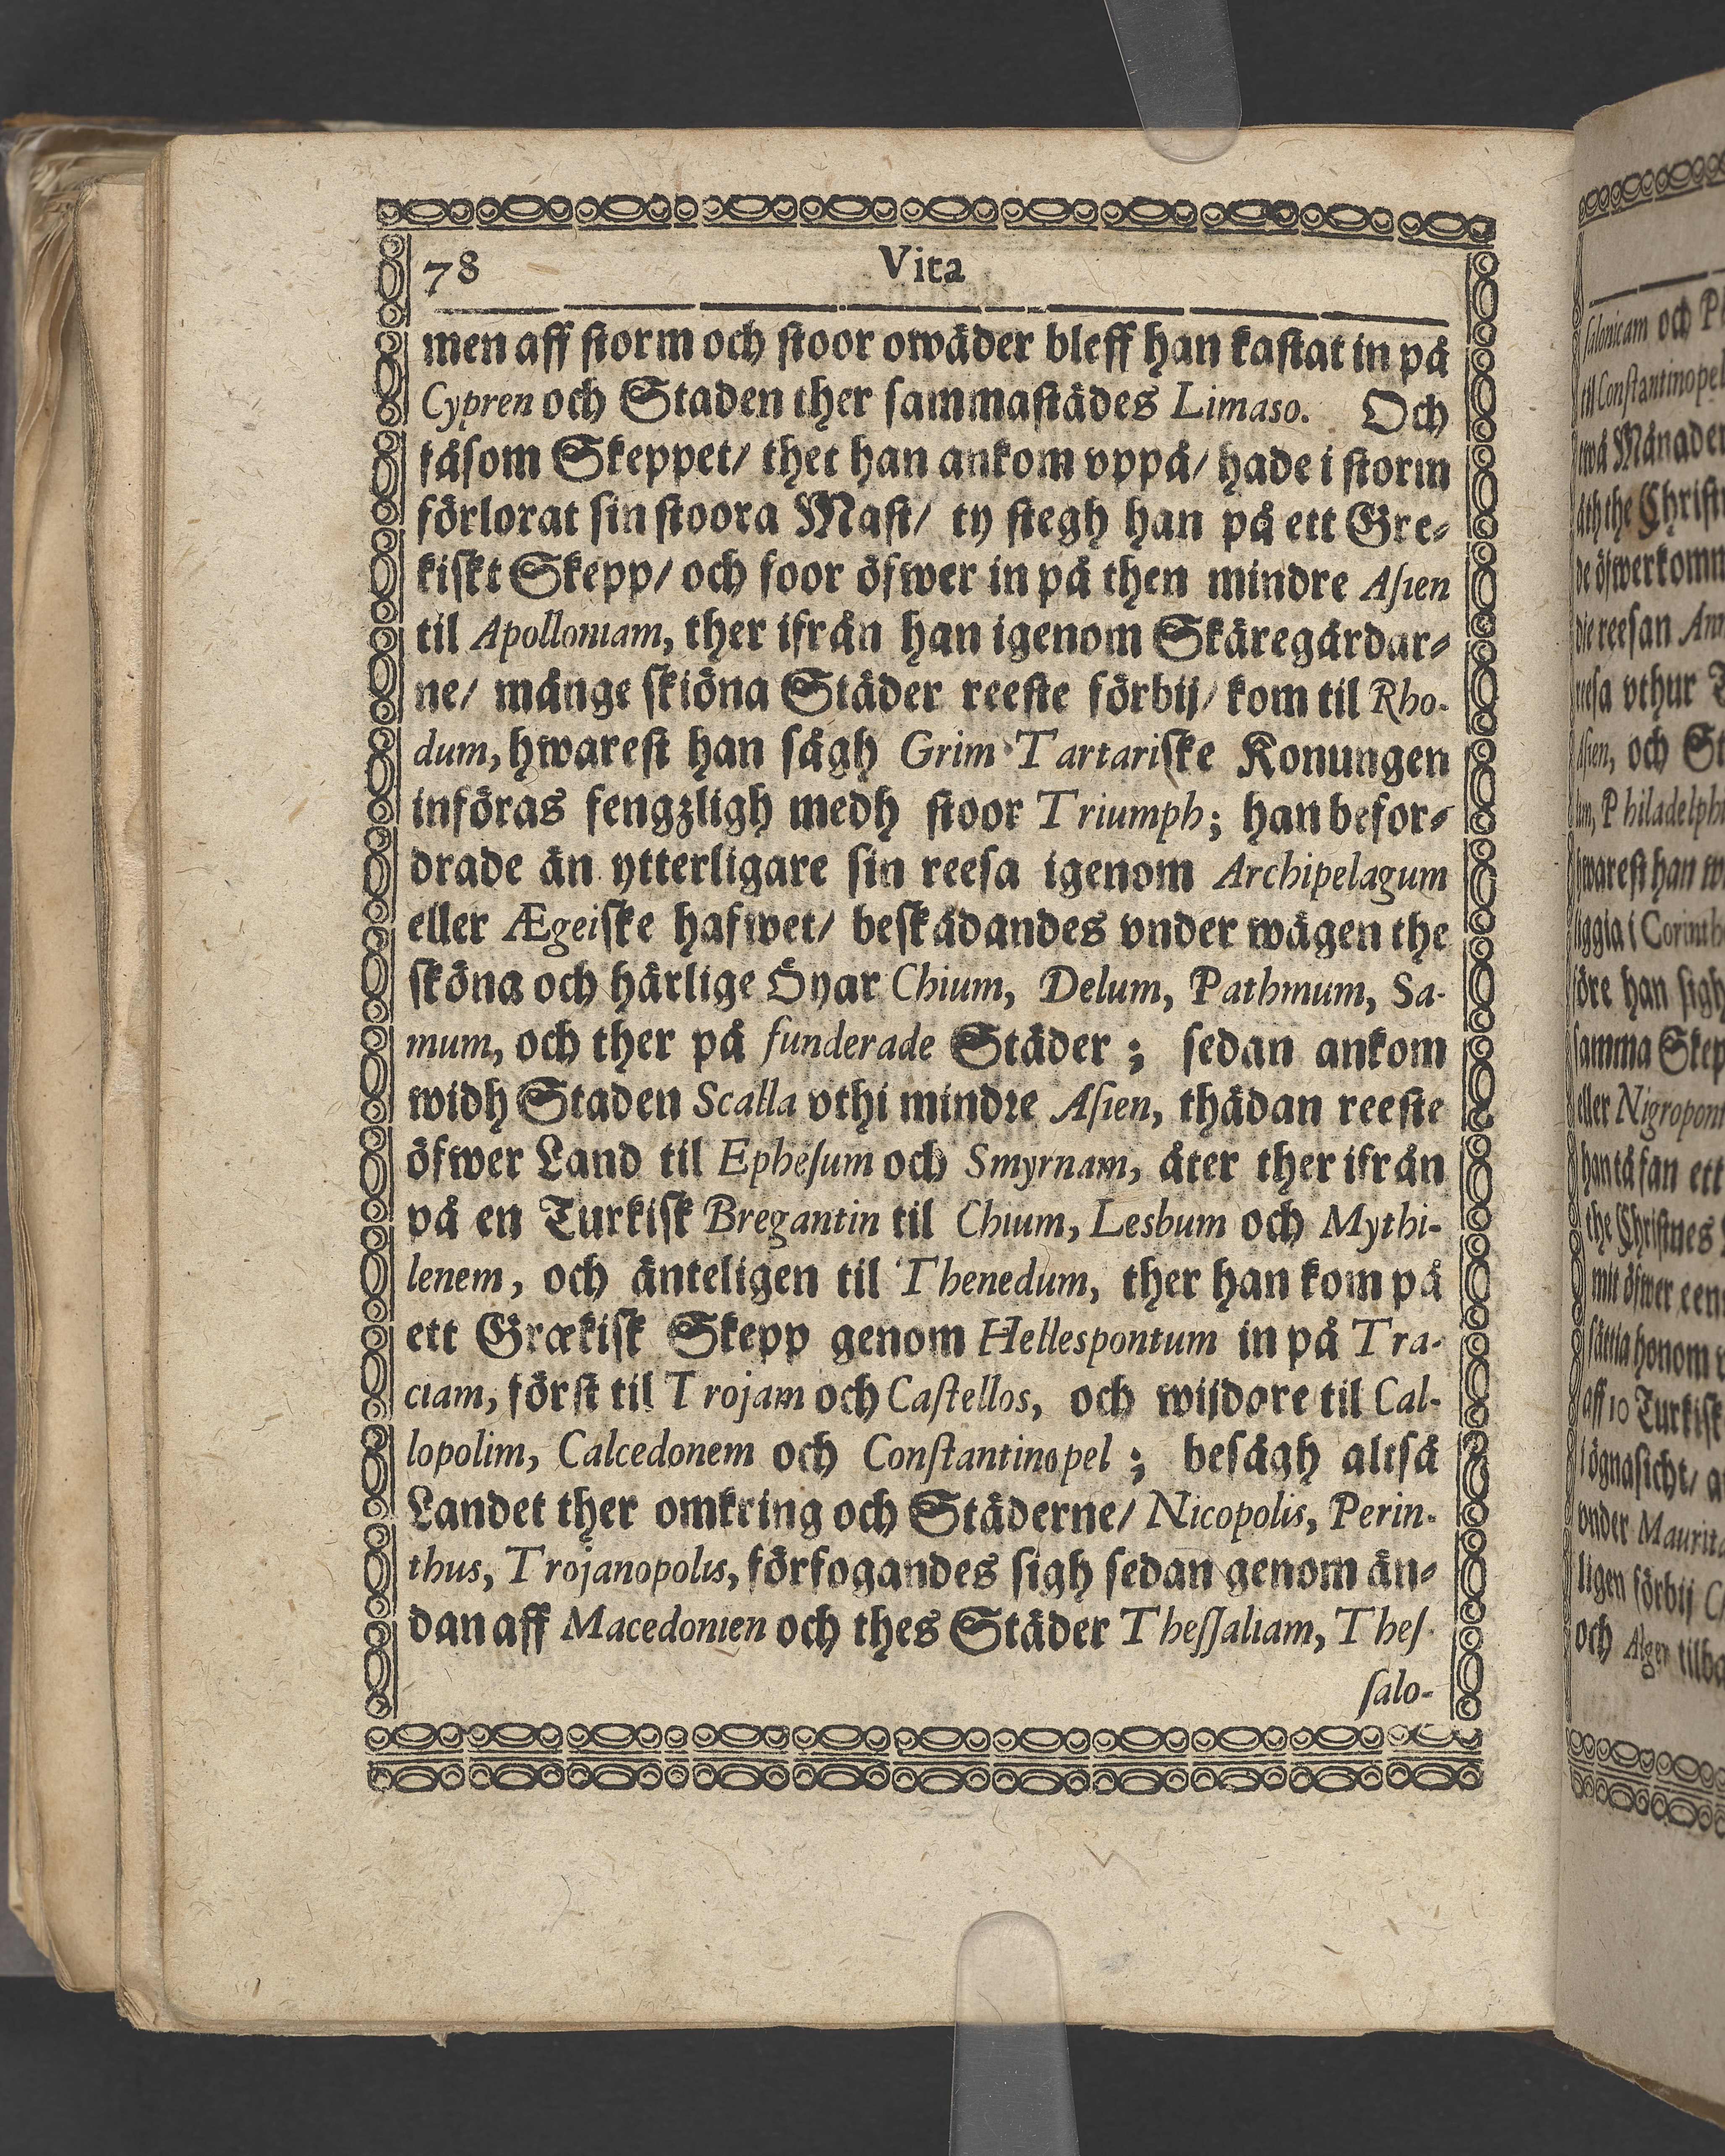 78
Vita
men aff storm och stoor owäder bleff han kastat in på
Cypren och Staden ther sammastädes Limaso. Och
såsom Skeppet/ thet han ankom vppå/ hade i storm
förlorat sin stoora Mast/ ty stegh han på ett Gre-
kiskt Skepp/ och foor öfwer in på then mindre Asien
til Apolloniam, ther ifrån han igenom Skäregårdar-
ne/ många skiöna Städer reeste förbij/ kom til Rho-
dum, hwarest han sågh Grim Tartariske Konungen
införas fengzligh medh stoor Triumph; han befor-
drade än ytterligare sin reesa igenom Archipelagum
eller Ægeiske hafwet/ beskådandes vnder wägen the
sköna och härlige Öyar Chium, Delum, Pathmum, Sa-
mum, och ther på funderade Städer; sedan ankom
widh Staden Scalla vthi mindre Asien, thädan reeste
öfwer Land til Ephesum och Smyrnam, åter ther ifrån
på en Turkisk Bregantin til Chium, Lesbum och Mythi-
lenem, och änteligen til Thenedum, ther han kom på
ett Grækisk Skepp genom Hellespontum in på Tra-
ciam, först til Trojam och Castellos, och wijdare til Cal-
lopolim, Calcedonem och Constantinopel; besågh altså
Landet ther omkring och Städerne/ Nicopolis, Perin-
thus, Trojanopolis, förfogandes sigh sedan genom än-
dan aff Macedonien och thes Städer Thessaliam, Thes-
salo-
salonicam och
til Constantinopel
twå Månader
åth the
de öfwerkomm
die reesan
reesa vthur
Asien, och
Philadelphi
hwarest han
liggia i Corinth
före han sigh
samma Skep
eller Nigropont
han så fan ett
the Christnes
mit öfwer een
sättia honom
aff 10 Turkisk
i ögnasicht/
vnder Maurita
ligen förbij
och Alger tilba